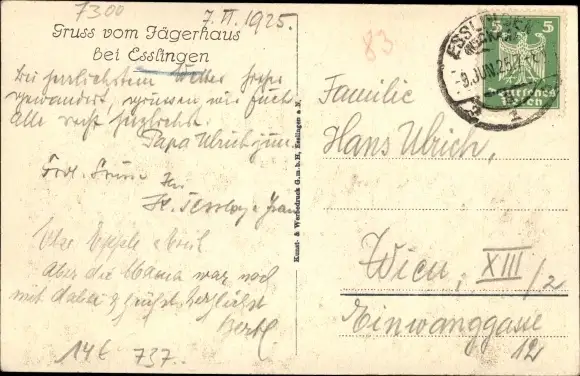 7300
7. II. 1925.
Gruss vom Jägerhaus
bei Esslingen
83
Bei herrlichstem Wetter
gewandert, grüssen wir Euch
Alle recht herzlichst
Papa Ulrich jun.
aber die Mama war noch
mit dabei & grüßt herzlichst
Bertl
14 E 737.
Kunst- & Werbedruck G.m.b.H, Esslingen a.N.
ESSLINGEN
5 5
Deutsches
Reich
Familie
Hans Ulrich,
Wien, XIII/2
Einwanggasse
12